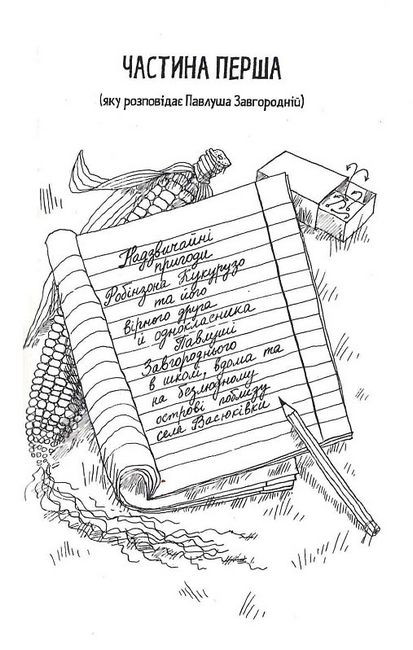 ЧАСТИНА ПЕРША
(яку розповідає Павлуша Завгородній)
Надзвичайні
пригоди
Робінзона Кукурузо
та його
вірного друга
й однокласника
Павлуші
Завгороднього
в школі, вдома та
на безлюдному
острові поблизу
села Васюківки